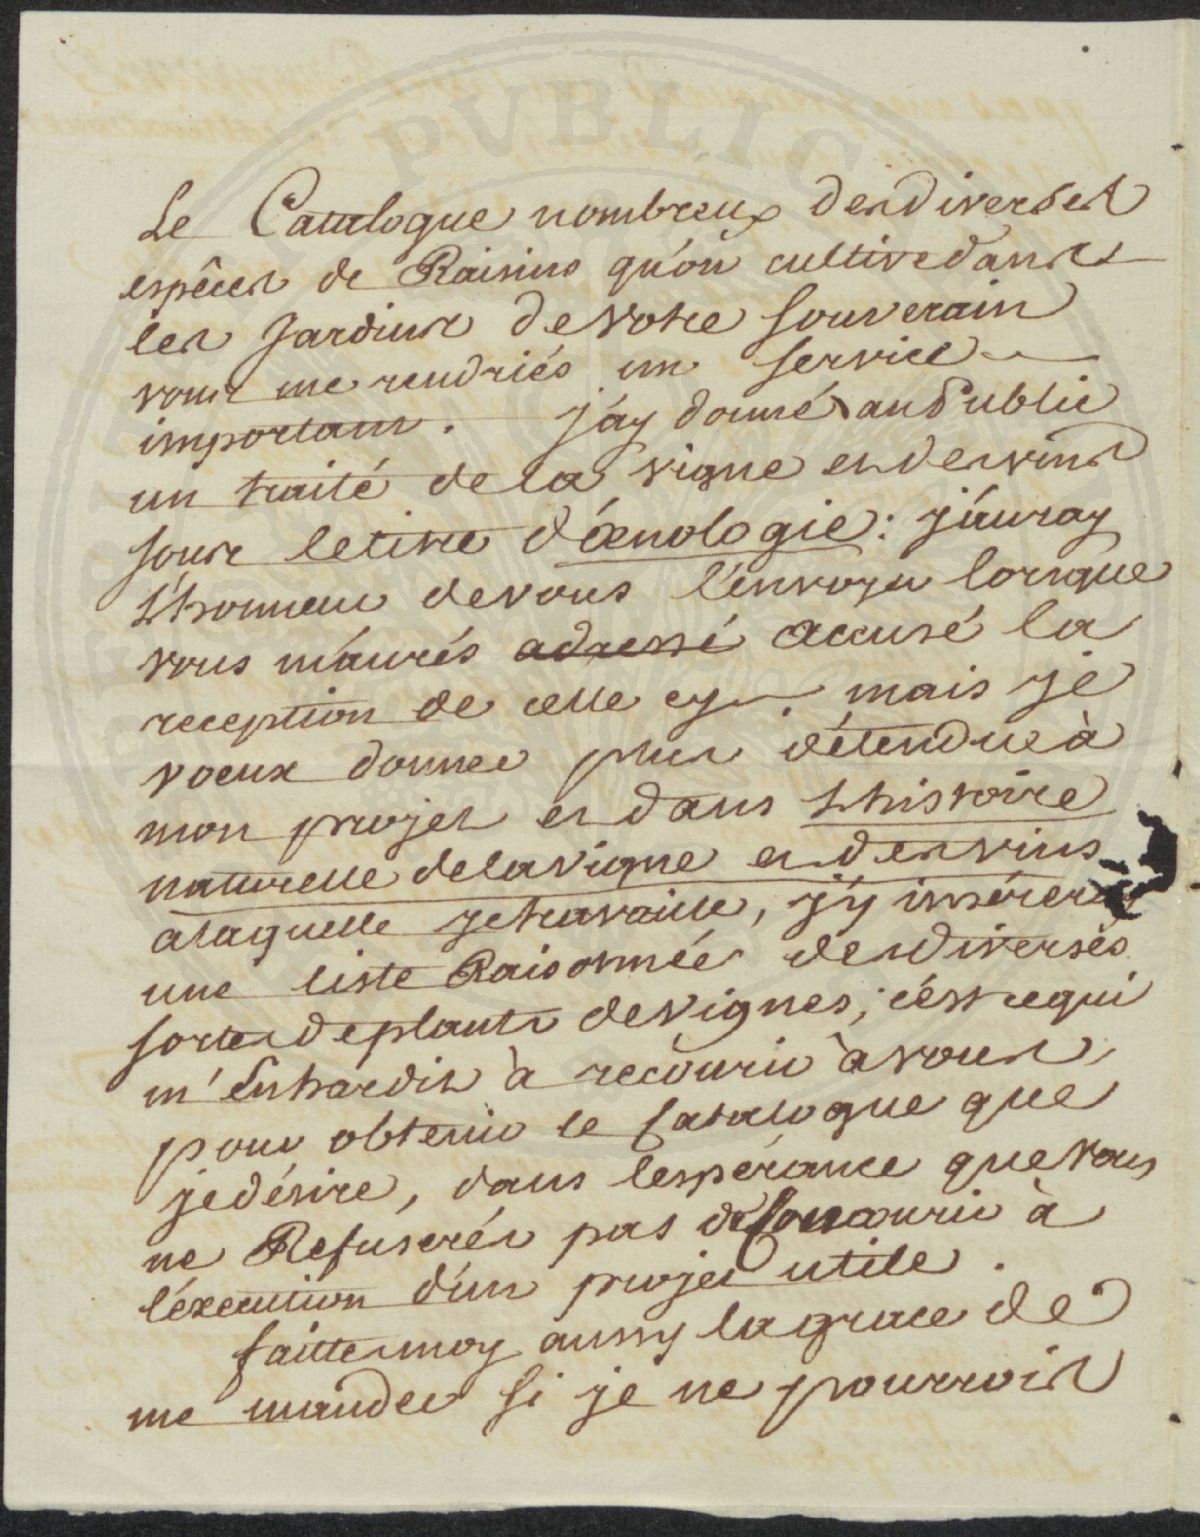 PVBLIC
Le Catalogue nombreux des diverses
espêces de Raisins qu'on cultive dans
les Jardins de votre Souverain
vous me rendriés un service
important. j'ay donné au Public
un traité de la vigne et des vins
sous le titre d'œnologie: j'auray
L'honneur de vous l'envoyer lorsque
vous m'aurés adressé accusé la
reception de celle cy. mais je
voeux donner plus d'étendue à
mon projet et dans L'histoire
naturelle de la Vigne et des vins
a laquelle je travaille, j'y inséreray
une liste Raisonnée des diverses
sortes de plants de vignes; c'est ce qui
m'Enhardit à recourir à vous
pour obtenir le Catalogue que
je désire, dans l'espérance que vous
ne Refuserés pas de Concourir à
l'éxecution d'un projet utile.
faitte moy aussy la grace de
me mander Si je ne pourrois